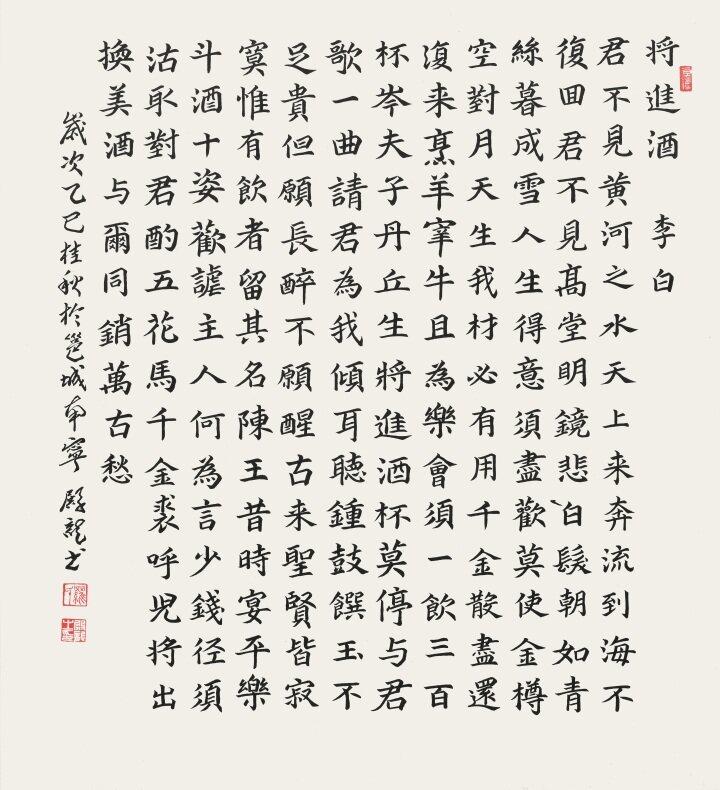 将進酒 李白
君不見黄河之水天上来奔流到海不
復囬君不見髙堂明鏡悲白髮朝如青
絲暮成雪人生得意須盡歡莫使金樽
空對月天生我材必有用千金散盡還
復来烹羊宰牛且為樂會須一飲三百
杯岑夫子丹丘生將進酒杯莫停与君
歌一曲請君為我傾耳聽鍾鼓饌玉不
足貴但願長醉不願醒古来聖賢皆寂
寞惟有飲者留其名陳王昔時宴平樂
斗酒十姿歡謔主人何為言少錢径須
沽取對君酌五花馬千金裘呼児将出
換美酒与爾同銷萬古愁
歲次乙巳桂秋於邕城南寧 龍书